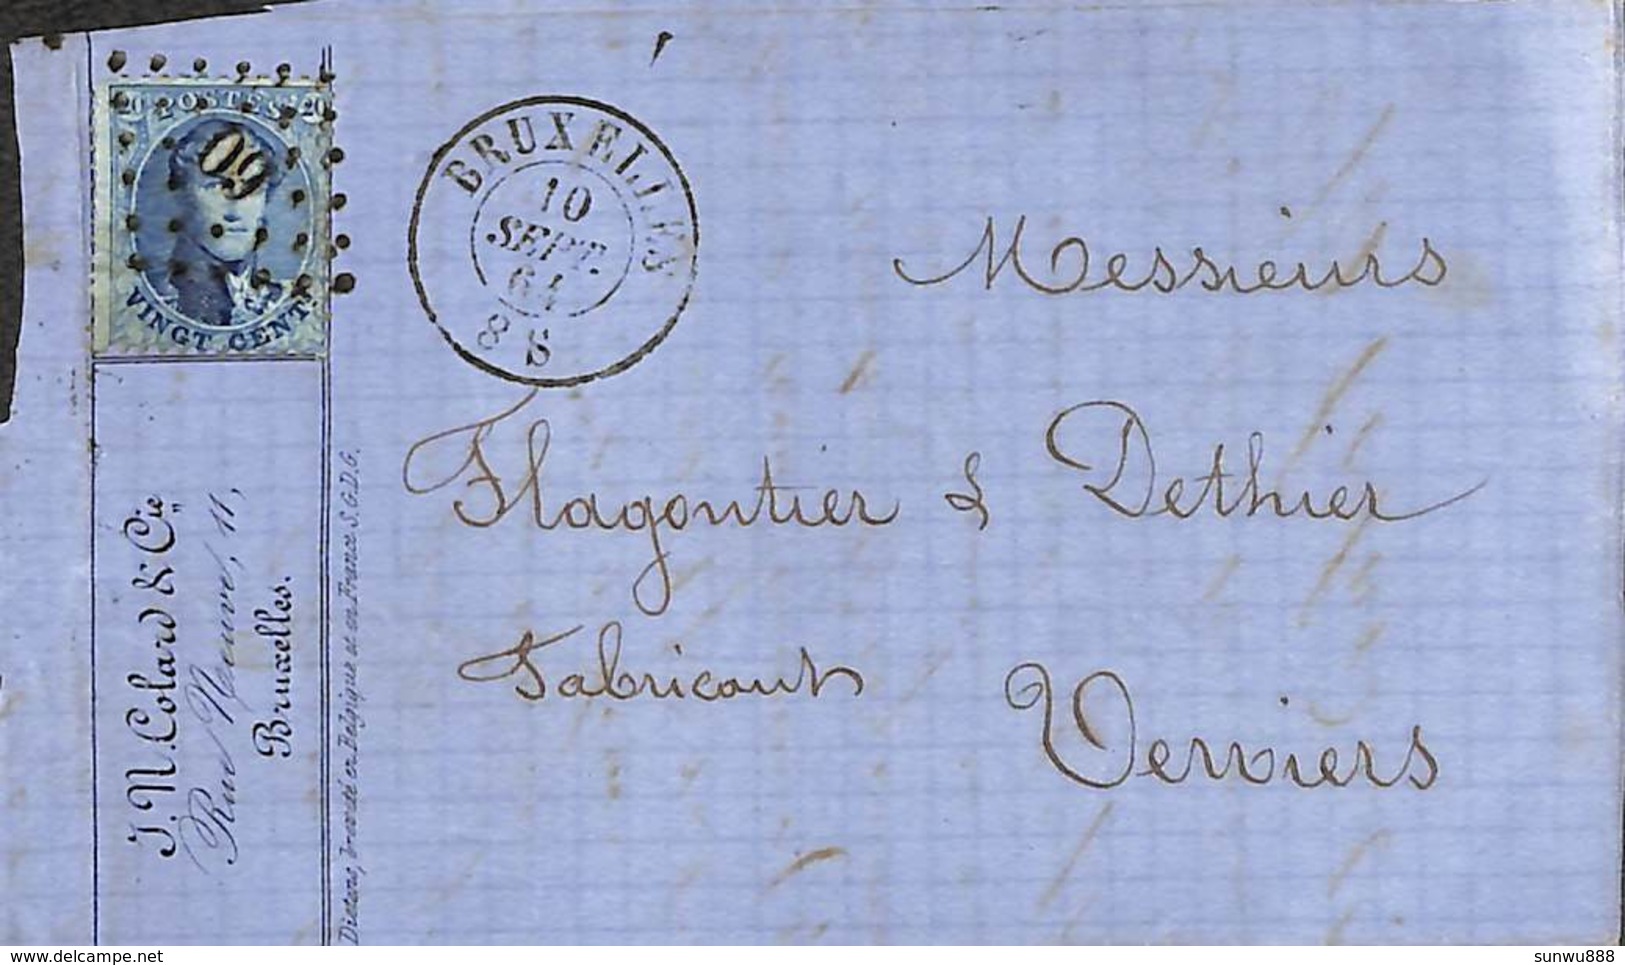 20 POSTES 20
60
VINGT CENTS
BRUXELLES
10
SEPT.
64
8 S
Messieurs
Flagontier & Dethier
Fabricants
Verviers
J. N. Colard & Cie
Rue Neuve, 11,
Bruxelles.
breveté en Belgique et en France S.G.D.G.
delcampe.net
sunwu888